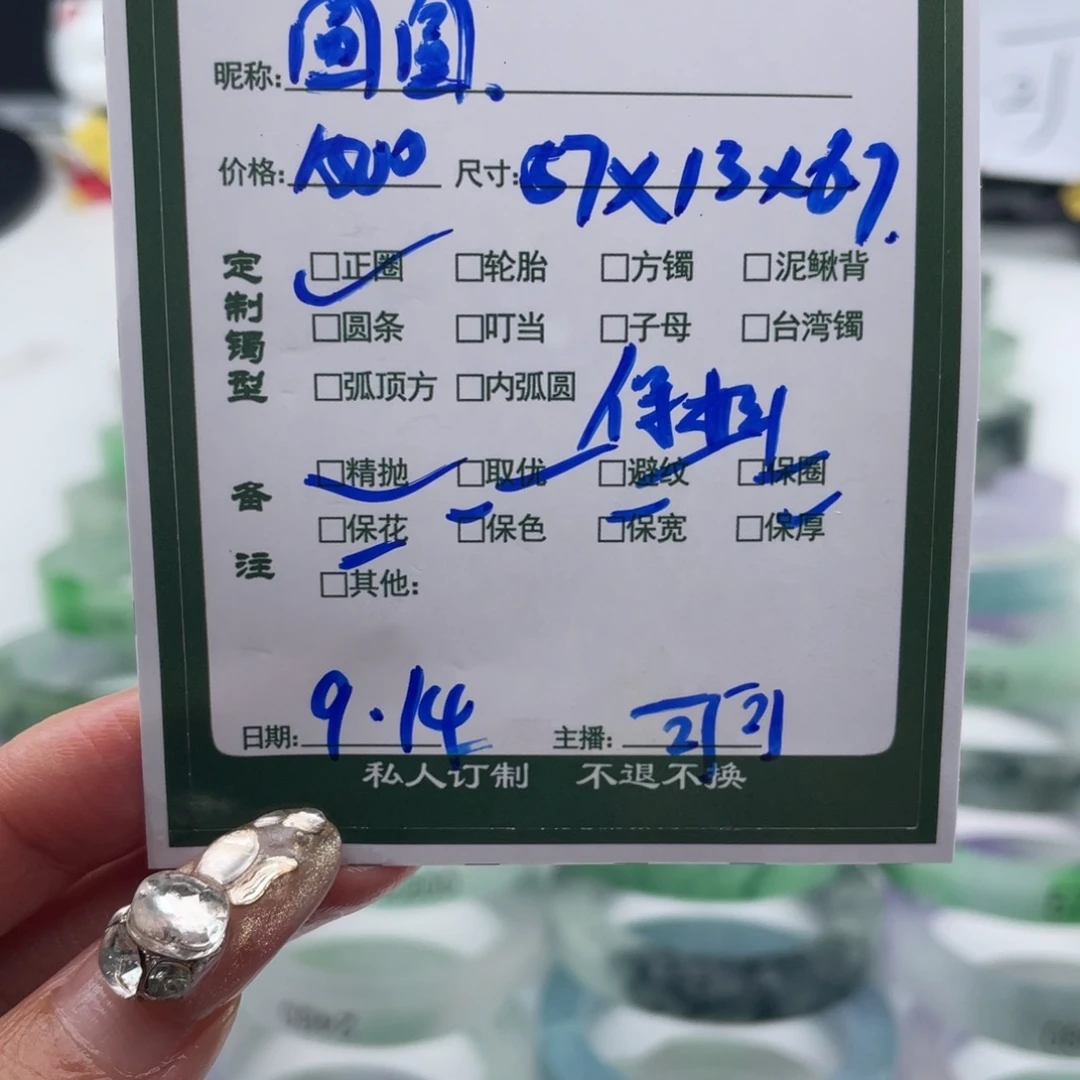 昵称: 圆圆.
价格: 1500 尺寸: 57×13×6.7.
定制镯型
□正圈 □轮胎 □方镯 □泥鳅背
□圆条 □叮当 □子母 □台湾镯
□弧顶方 □内弧圆
备注
□精抛 □取优 □避纹 □保圈
□保花 □保色 □保宽 □保厚
□其他:
日期: 9.14 主播: 可可
私人订制 不退不换
可